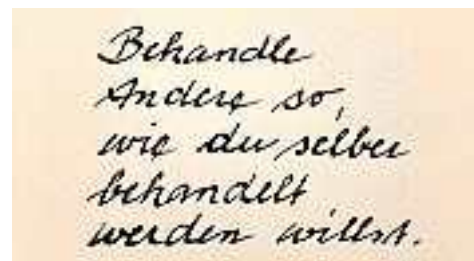 Behandle
Andere so,
wie du selber
behandelt
werden willst.